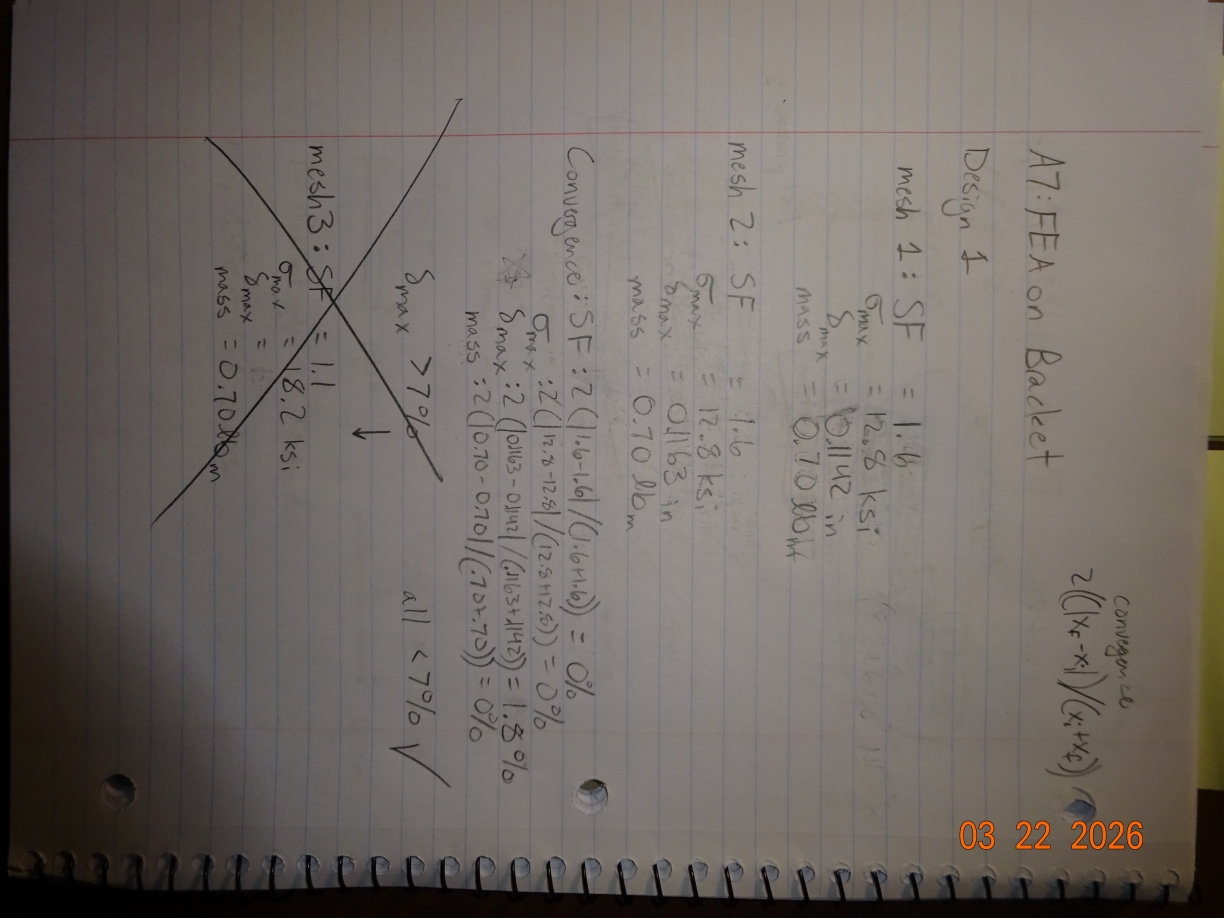 convergence
2((|x_f-x_i|)/(x_i+x_f))
A7: FEA on Bracket
Design 1
mesh 1: SF = 1.6
σ_max = 12.8 ksi
δ_max = 0.1142 in
mass = 0.70 lbm
mesh 2: SF = 1.6
σ_max = 12.8 ksi
δ_max = 0.1163 in
mass = 0.70 lbm
Convergence: SF: 2(|1.6-1.6|/(1.6+1.6)) = 0%
σ_max: 2(|12.8-12.8|/(12.8+12.8)) = 0%
δ_max: 2(|0.1163-0.1142|/(.1163+.1142)) = 1.8%
mass: 2(|0.70-0.70|/(.70+.70)) = 0%
δ_max > 7% ↓ all < 7% √
mesh3: SF = 1.1
σ_max = 18.2 ksi
δ_max =
mass = 0.70 lbm
03 22 2026